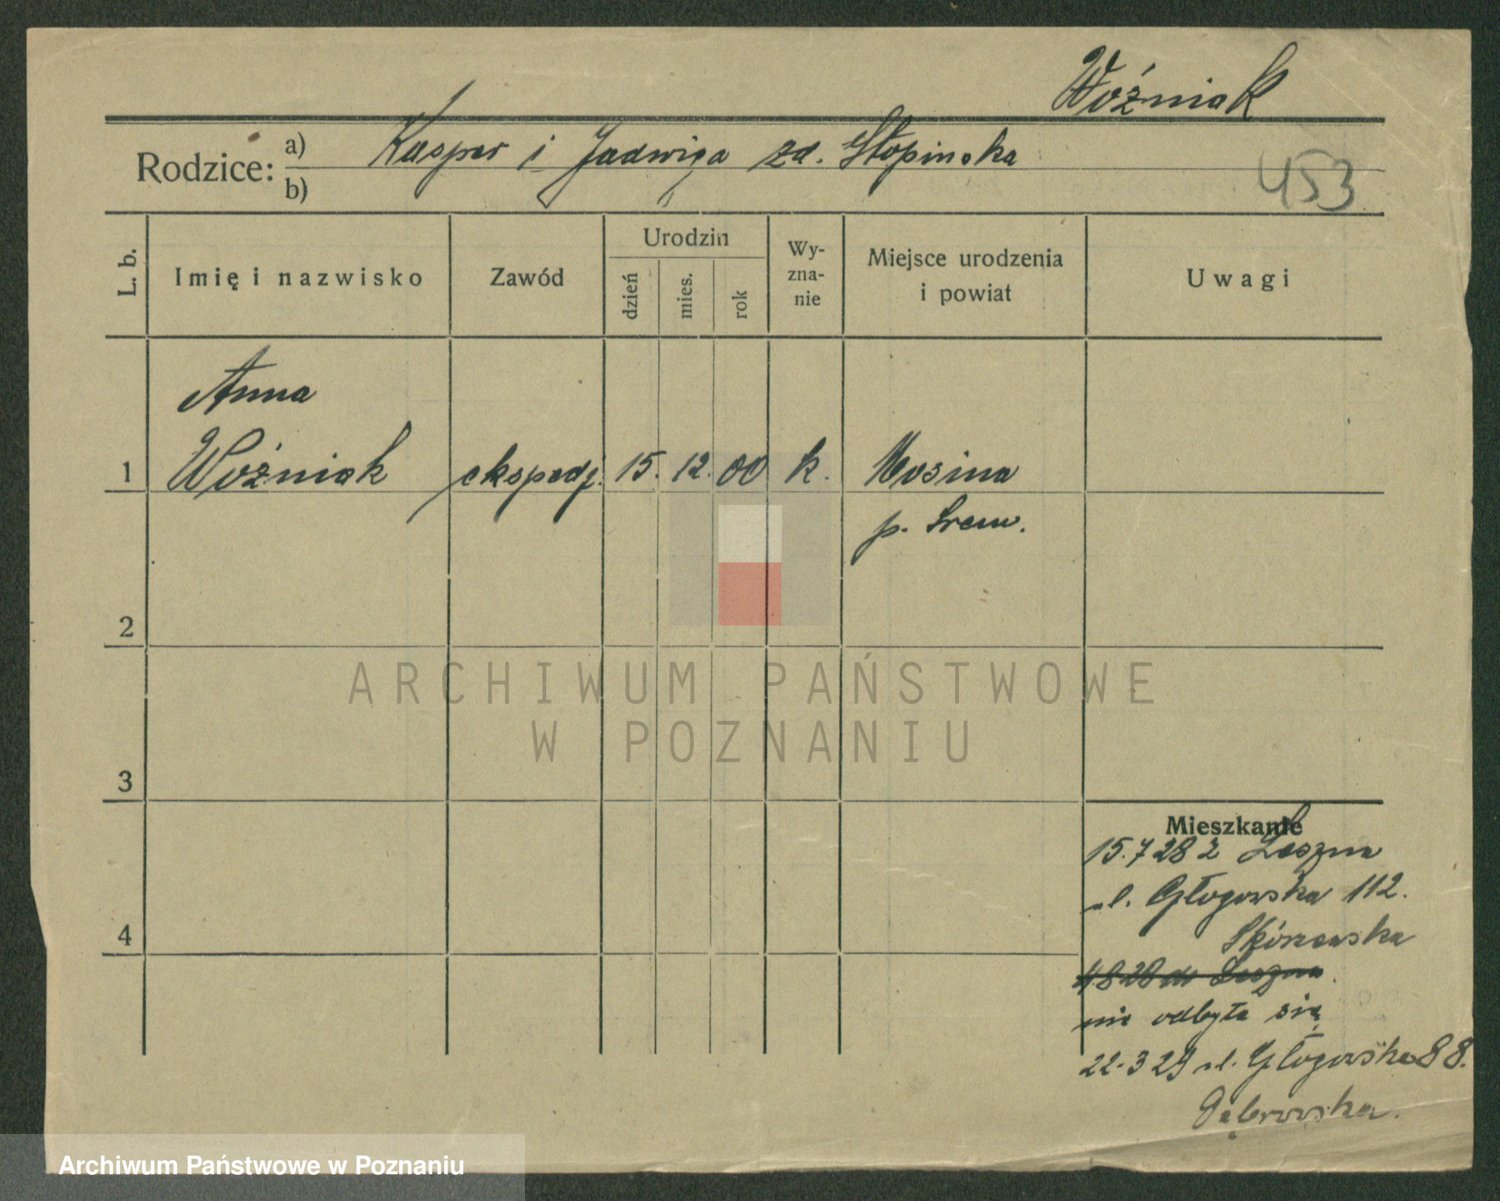 Woźniak
Rodzice: a) Kasper i Jadwiga zd. Słopińska
b)
453
L. b.
Imię i nazwisko
Zawód
Urodzin
dzień
mies.
rok
Wy-
zna-
nie
Miejsce urodzenia
i powiat
Uwagi
Anna
1 Woźniak ekspedj. 15. 12. 00 k. Mosina
p. Śrem.
2
3
4
ARCHIWUM PAŃSTWOWE
W POZNANIU
Mieszkanie
15.7 28 z Leszna
ul. Głogowska 112.
Skórzewska
4 8 28 do Leszna.
nie odbyła się
22.3 29 ul. Głogowska 88.
Dąbrowska.
Archiwum Państwowe w Poznaniu